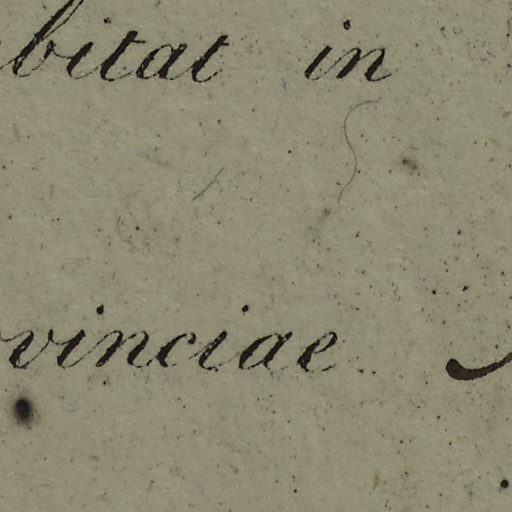 bitat in
vinciae